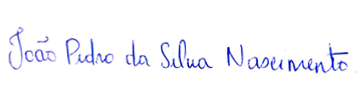 João Pedro da Silva Nascimento.